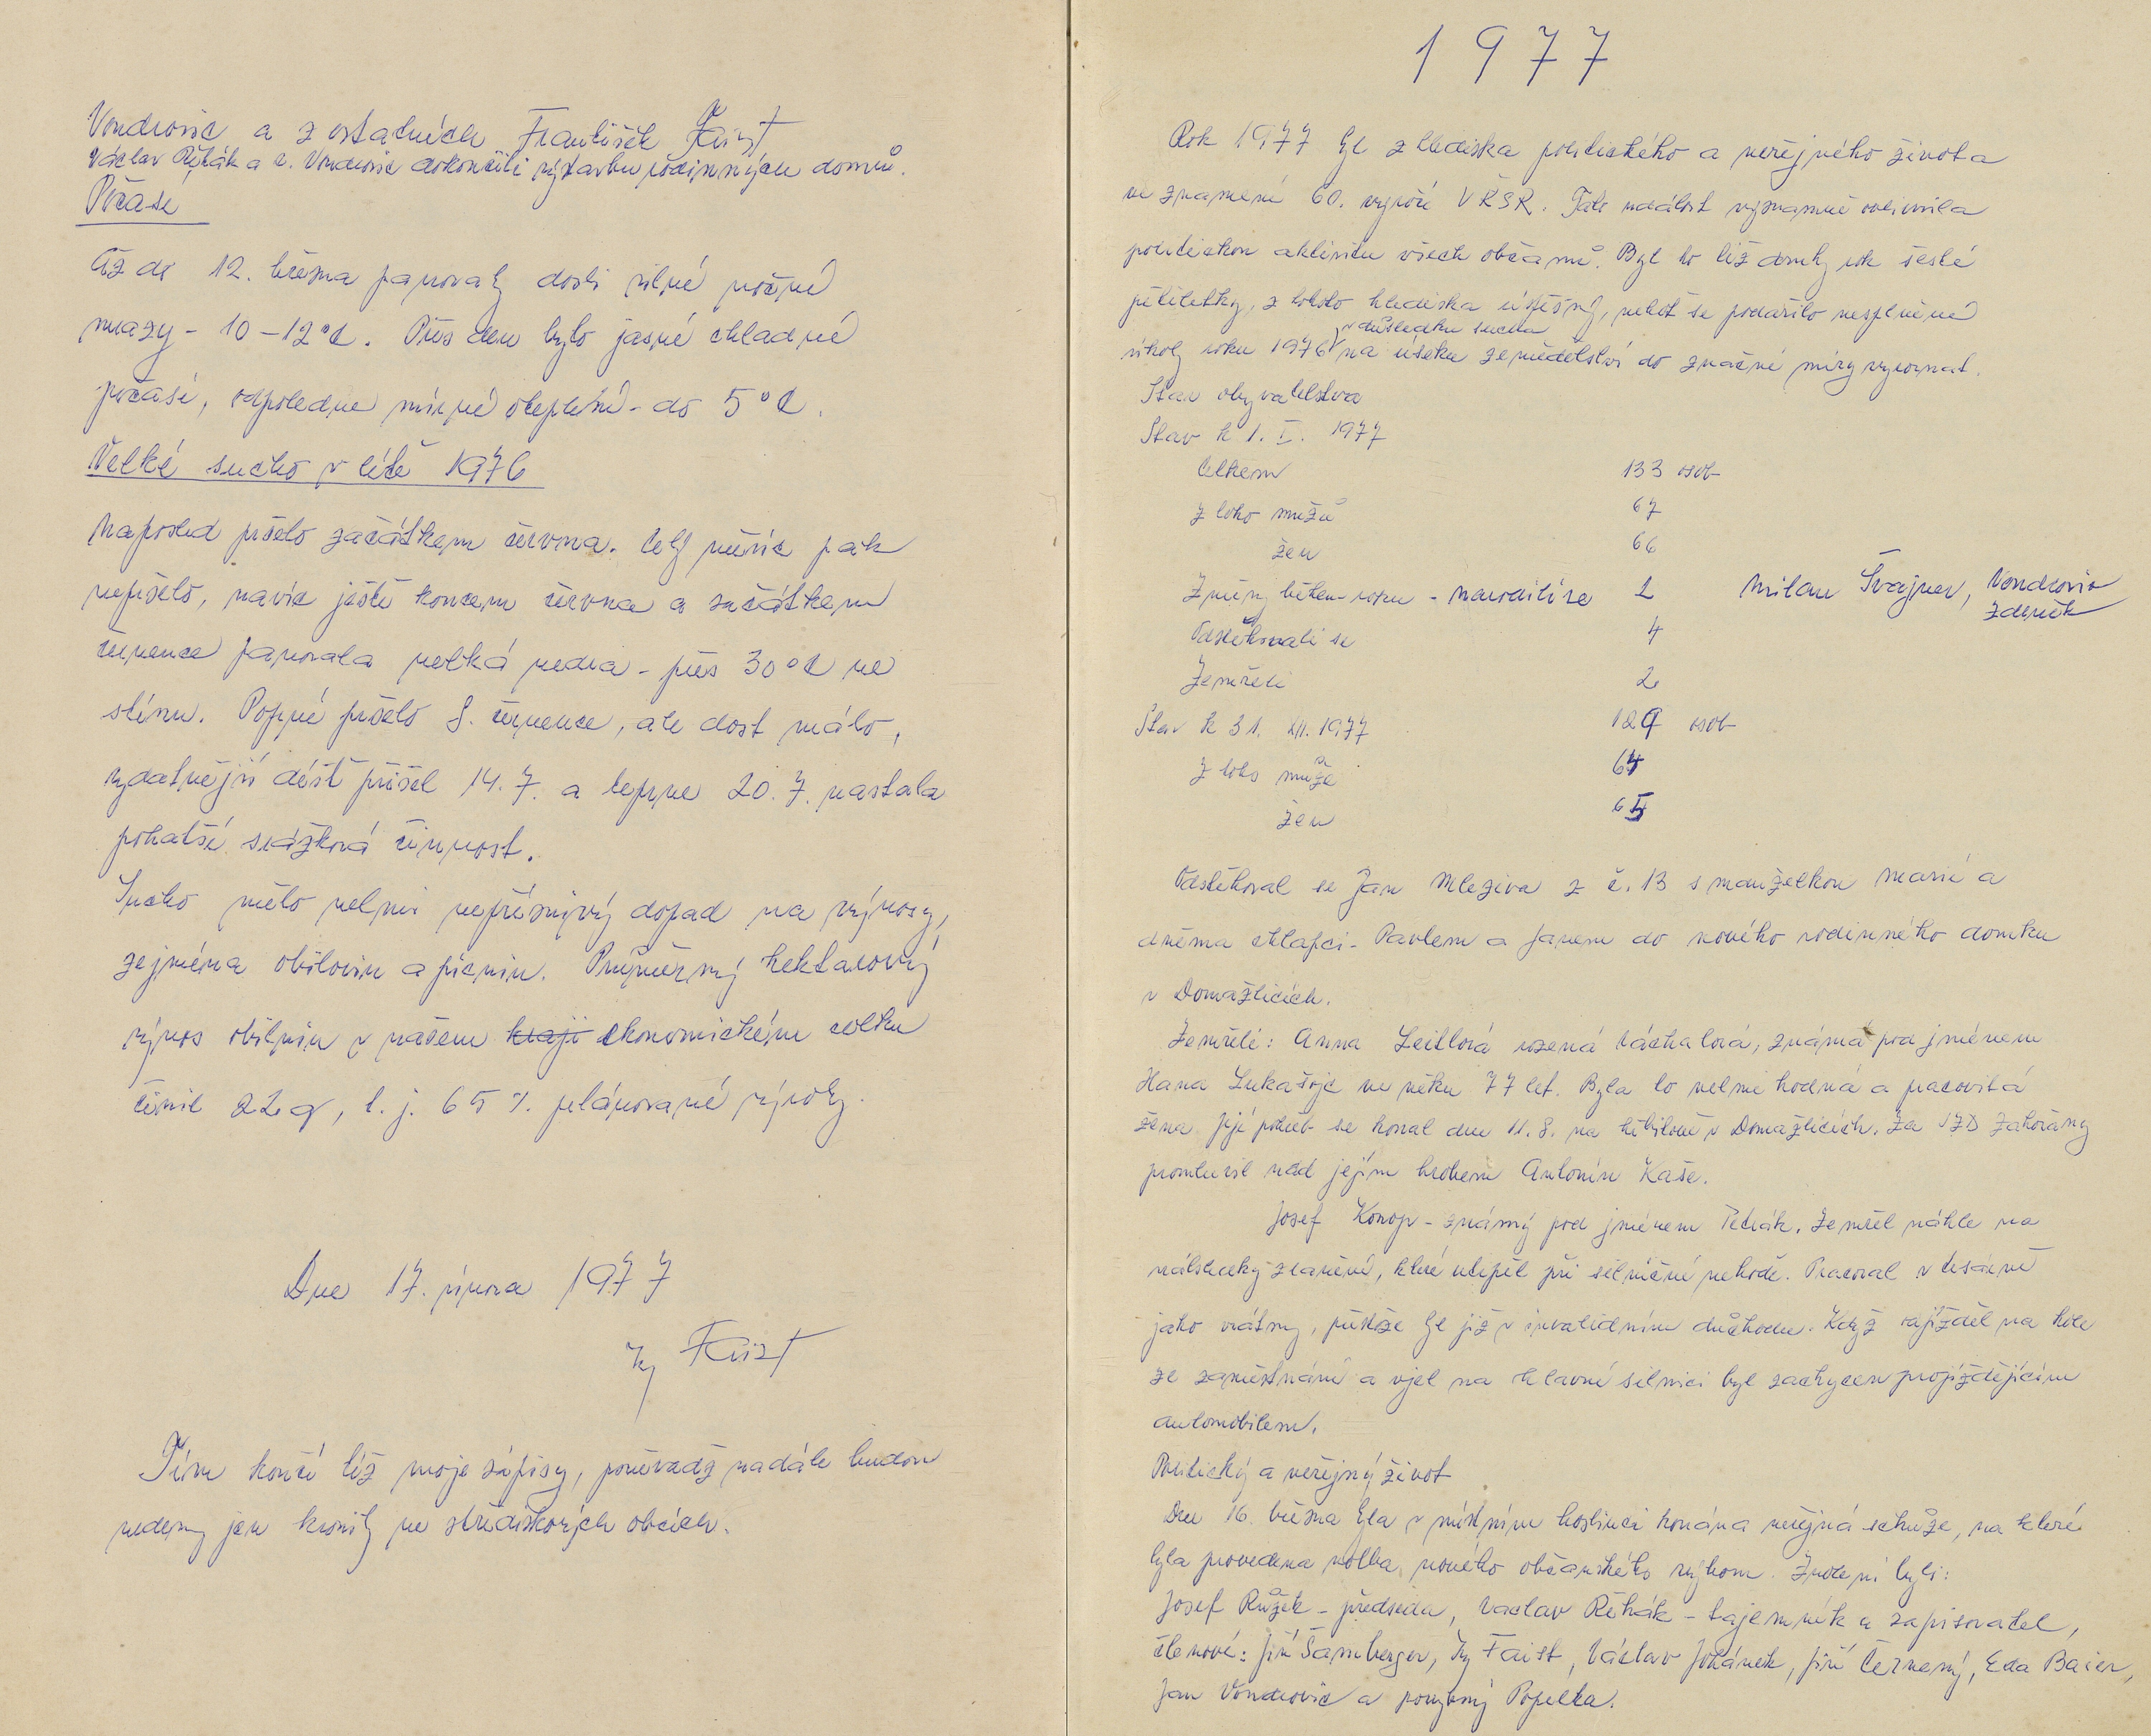 Vondrovic a z ostatních František Faist
Václav Řehák a č. Vondrovic dokončili výstavbu rodinných domů.
Počasí
Až do 12. března panovaly dosti silné noční
mrazy - 10 - 12°C. Přes den bylo jasné chladné
počasí, odpoledne mírné oteplení - do 5°C.
Velké sucho v létě 1976
Naposled pršelo začátkem června. Celý měsíc pak
nepršelo, navíc ještě koncem června a začátkem
července panovala velká vedra - přes 30°C ve
stínu. Poprvé pršelo 8. července, ale dost málo,
vydatnější déšť přišel 14. 7. a teprve 20. 7. nastala
bohatší srážková činnost.
Sucho mělo velmi nepříznivý dopad na výnosy,
zejména obilovin a pícnin. Průměrný hektarový
výnos obilnin v našem kraji ekonomickém celku
činil 22 q, t. j. 65 %. plánované výroby.
Dne 17. února 1977
Faist
Tím končí též moje zápisy, poněvadž nadále budou
vedeny jen kroniky ve střediskových obcích.
1977
Rok 1977 byl z hlediska politického a veřejného života
ve znamení 60. výročí VŘSR. Tato událost významně ovlivnila
politickou aktivitu všech občanů. Byl to též druhý rok šesté
pětiletky, z tohoto hlediska úspěšný, neboť se podařilo nesplněné
v důsledku sucha
úkoly roku 1976 na úseku zemědělství do značné míry vyrovnat.
Stav obyvatelstva
Stav k 1. I. 1977
Celkem 133 osob
z toho mužů 67
žen 66
Změny během roku - narodili se 2 Milan Švajner, Vondrovic
Zdeněk
Odstěhovali se 4
Zemřeli 2
Stav k 31. XII. 1977 129 osob
z toho muže 64
žen 65
Odstěhoval se Jan Mleziva z č. 13 s manželkou Marií a
dvěma chlapci - Pavlem a Janem do nového rodinného domku
v Domažlicích.
Zemřeli: Anna Leitlová rozená Váchalová, známá pod jménem
Hana Lukašojc ve věku 77 let. Byla to velmi hodná a pracovitá
žena. Její pohřeb se konal dne 11. 8. na hřbitově v Domažlicích. Za JZD Zahořany
promluvil nad jejím hrobem Antonín Kaše.
Josef Konop - známý pod jménem Petrák. Zemřel náhle na
následky zranění, které utrpěl při silniční nehodě. Pracoval v
jako vrátný, přestože byl již v invalidním důchodu. Když odjížděl na kole
ze zaměstnání a vjel na hlavní silnici byl zachycen projíždějícím
automobilem.
Politický a veřejný život
Dne 16. března byla v místním hostinci konána veřejná schůze, na které
byla provedena volba nového občanského výboru. Zvoleni byli:
Josef Růžek - předseda, Václav Řehák - tajemník a zapisovatel,
členové: Jiří Šamberger, Faist, Václav Johánek, Jiří Černený, Eda Baier,
Jan Vondrovic a Popelka.